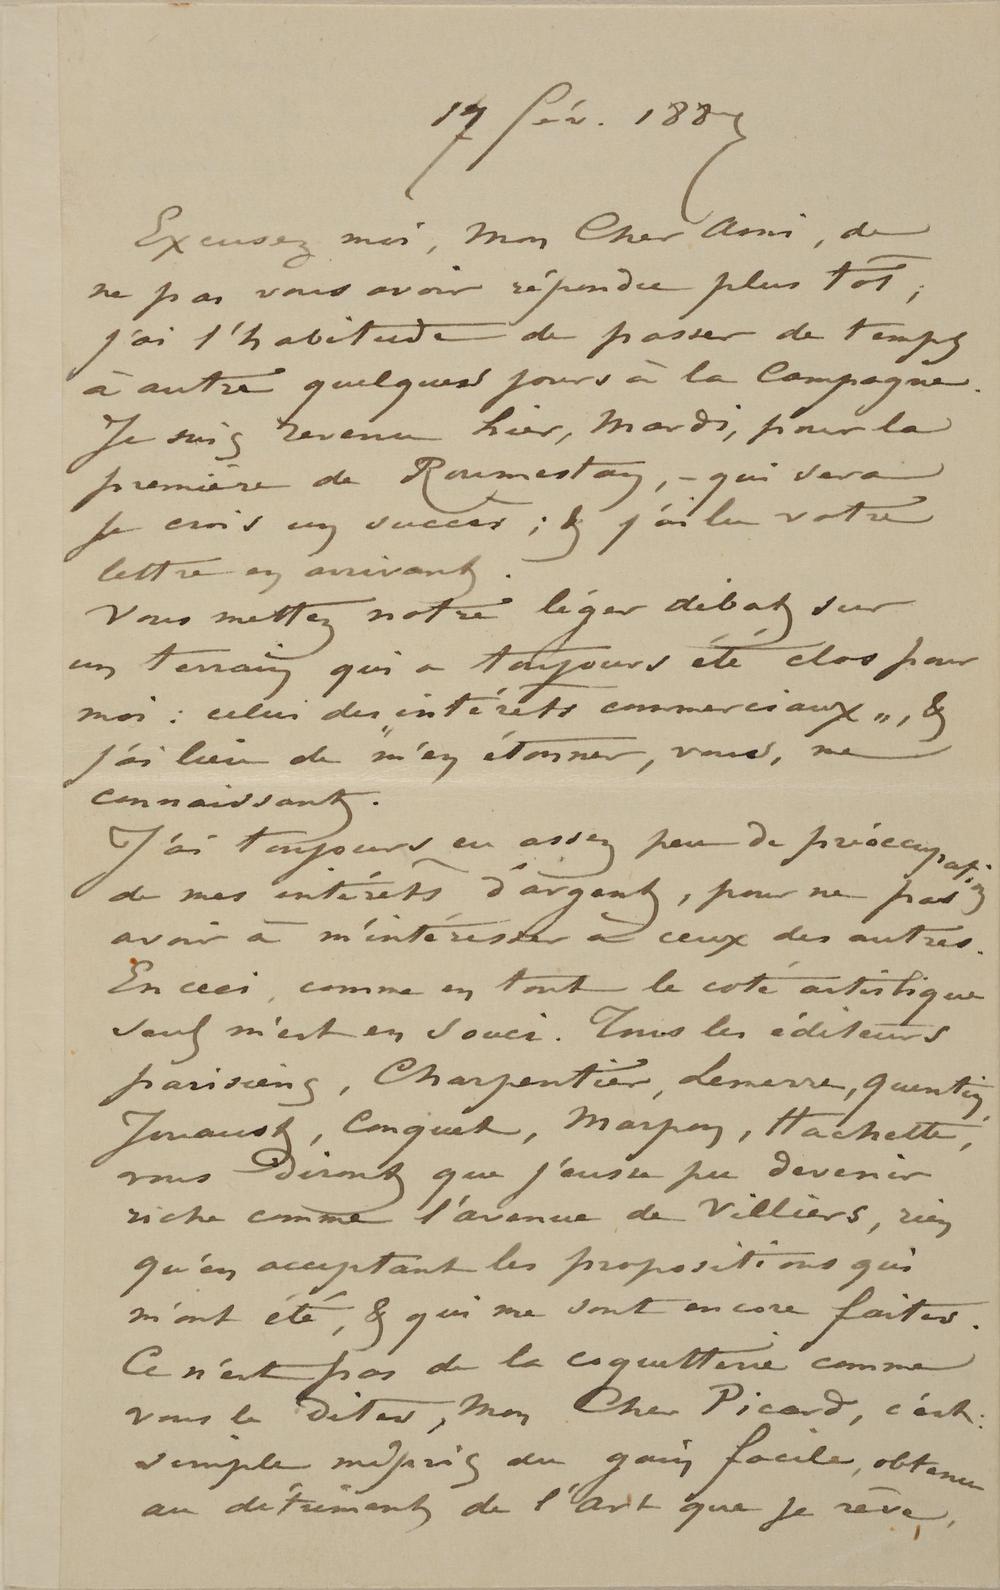 17 fév. 1887
Excusez moi, Mon Cher Ami, de
ne pas vous avoir répondu plus tôt ;
j'ai l'habitude de passer de temps
à autre quelques jours à la Campagne.
Je suis revenu hier, Mardi, pour la
première de Roumestan, – qui sera
je crois un succès ; & j'ai lu votre
lettre en arrivant.
Vous mettez notre léger débat sur
un terrain qui a toujours été clos pour
moi : celui des "intérêts commerciaux", &
j'ai lieu de m'en étonner, vous, me
connaissant.
J'ai toujours eu assez peu de préoccupation
de mes intérêts d'argent, pour ne pas
avoir à m'intéresser à ceux des autres.
En ceci, comme en tout le coté artistique
seul m'est en souci. Tous les éditeurs
parisiens, Charpentier, Lemerre, Quentin,
Jouaust, Conquet, Marpon, Hachette,
vous diront que j'eusse pu devenir
riche comme l'avenue de Villiers, rien
qu'en acceptant les propositions qui
m'ont été, & qui me sont encore faites.
Ce n'est pas de la coquetterie comme
vous le dites, Mon Cher Picard, c'est :
simple mépris du gain facile, obtenu
au détriment de l'Art que je rêve,